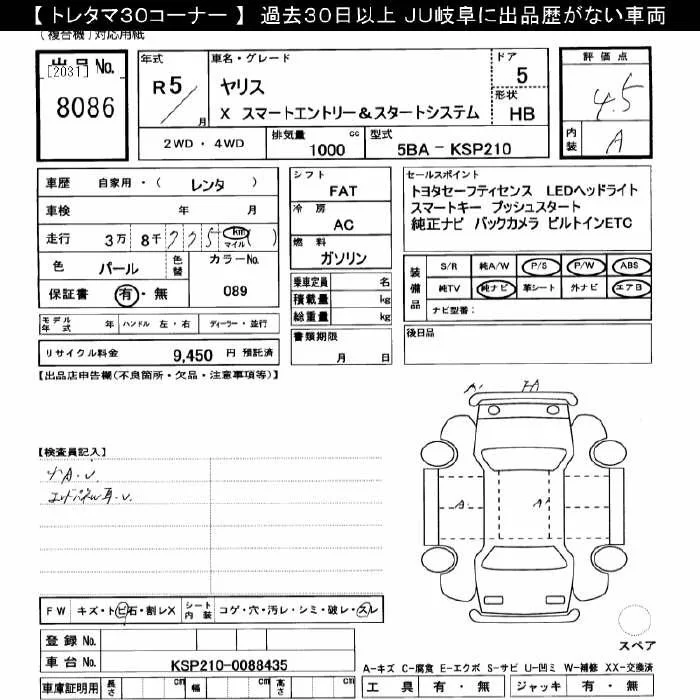 【 トレタマ30コーナー 】 過去30日以上 JU岐阜に出品歴がない車両
(複合機)対応用紙
出品No.
[2031]
8086
年式
R5
月
車名・グレード
ヤリス
X スマートエントリー&スタートシステム
ドア
5
形状
HB
評価点
4.5
内装
A
2WD・4WD
排気量 cc
1000
型式
5BA-KSP210
車歴 自家用・( レンタ )
車検 年 月
走行 3万 8千 775 km マイル ( )
色 パール
色替
カラーNo.
089
保証書 有・無
シフト
FAT
冷房
AC
燃料
ガソリン
乗車定員 名
積載量 kg
総重量 kg
セールスポイント
トヨタセーフティセンス LEDヘッドライト
スマートキー プッシュスタート
純正ナビ バックカメラ ビルトインETC
装備品
S/R 純A/W P/S P/W ABS
純TV 純ナビ 革シート 外ナビ エアB
ナビ型番:
モデル年式 年 ハンドル 左・右 ディーラー・並行
書類期限
月 日
後日品
リサイクル料金 9,450 円 預託済
【出品店申告欄(不良箇所・欠品・注意事項等)】
A. FA
【検査員記入】
小A.U.
エンドパネル耳.U
A. A
FW キズ・トビ石・割レX
シート内装 コゲ・穴・汚レ・シミ・破レ・スレ
スペア
登録No.
車台No. KSP210-0088435
A-キズ C-腐食 E-エクボ S-サビ U-凹ミ W-補修 XX-交換済
車庫証明用 長さ cm 幅 cm 高さ cm
工具 有・無 ジャッキ 有・無